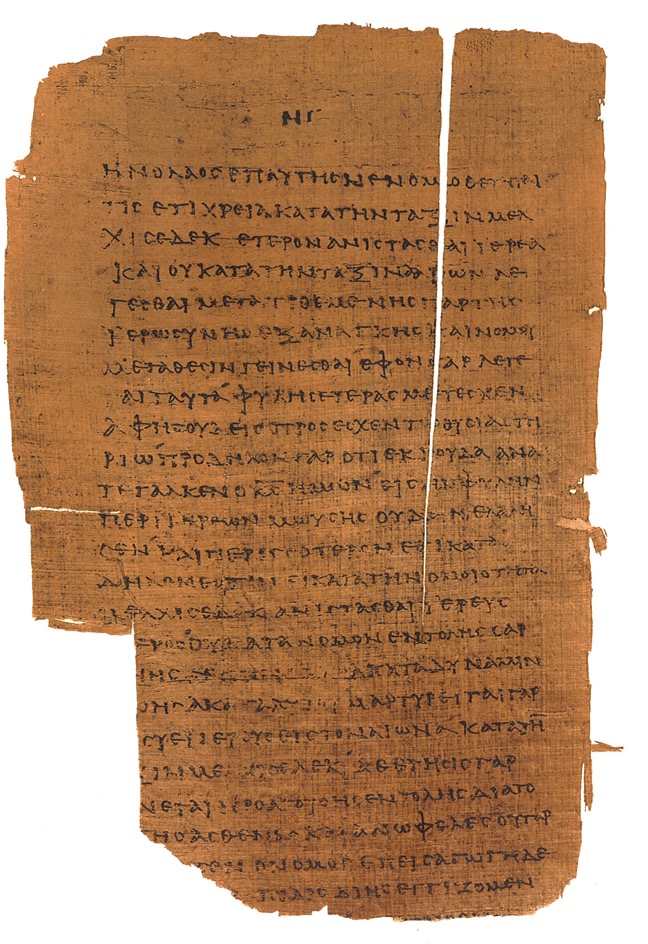 ΝΓ
Η Ν Ο ΛΑΟΣ ΕΠ ΑΥΤΗΣ ΝΕΝΟΜΟΘΕΤΗΤΑΙ
ΤΙΣ ΕΤΙ ΧΡΕΙΑ ΚΑΤΑ ΤΗΝ ΤΑΞΙΝ ΜΕΛ
ΧΙΣΕΔΕΚ ΕΤΕΡΟΝ ΑΝΙΣΤΑΣΘΑΙ ΙΕΡΕΑ
ΚΑΙ ΟΥ ΚΑΤΑ ΤΗΝ ΤΑΞΙΝ ΑΑΡΩΝ ΛΕ
ΓΕΣΘΑΙ ΜΕΤΑΤΙΘΕΜΕΝΗΣ ΓΑΡ ΤΗΣ
ΙΕΡΩΣΥΝΗΣ ΕΞ ΑΝΑΓΚΗΣ ΚΑΙ ΝΟΜΟΥ
ΜΕΤΑΘΕΣΙΝ ΓΕΙΝΕΣΘΑΙ ΕΦ ΟΝ ΓΑΡ ΛΕΓΕ
ΤΑΙ ΤΑΥΤΑ ΦΥΛΗΣ ΕΤΕΡΑΣ ΜΕΤΕΣΧΕΝ
ΑΦ ΗΣ ΟΥΔΕΙΣ ΠΡΟΣΕΣΧΕΝ ΤΩ ΘΥΣΙΑΣΤΗ
ΡΙΩ ΠΡΟΔΗΛΟΝ ΓΑΡ ΟΤΙ ΕΚ ΙΟΥΔΑ ΑΝΑ
ΤΕΤΑΛΚΕΝ Ο ΚΣ ΗΜΩΝ ΕΙΣ ΗΝ ΦΥΛΗΝ
ΠΕΡΙ ΙΕΡΕΩΝ ΜΩΥΣΗΣ ΟΥΔΕΝ ΕΛΑΛΗ
ΣΕΝ ΚΑΙ ΠΕΡΙΣΣΟΤΕΡΟΝ ΕΤΙ ΚΑΤΑ
ΔΗΛΟΝ ΕΣΤΙΝ ΕΙ ΚΑΤΑ ΤΗΝ ΟΜΟΙΟΤΗΤΑ
ΜΕΛΧΙΣΕΔΕΚ ΑΝΙΣΤΑΣΘΑΙ ΙΕΡΕΥΣ
ΕΡΟΣ ΟΣ ΟΥ ΚΑΤΑ ΝΟΜΟΝ ΕΝΤΟΛΗΣ ΣΑΡ
ΝΗΣ ΚΑΤΑ ΔΥΝΑΜΙΝ
ΩΗΣ ΑΚΑΤΑΛΥΤΟΥ ΜΑΡΤΥΡΕΙΤΑΙ ΓΑΡ
ΣΥ ΕΙ ΙΕΡΕΥΣ ΕΙΣ ΤΟΝ ΑΙΩΝΑ ΚΑΤΑ ΤΗ̅
ΞΙΝ ΜΕΛΧΙΣΕΔΕΚ ΑΘΕΤΗΣΙΣ ΓΑΡ
ΝΕΤΑΙ ΠΡΟΑΓΟΥΣΗΣ ΕΝΤΟΛΗΣ ΔΙΑ ΤΟ
ΤΗΣ ΑΣΘΕΝΕΣ ΚΑΙ ΑΝΩΦΕΛΕΣ ΟΥ ΓΑΡ
Ο ΝΟΜΟΣ ΕΠΕΙΣΑΓΩΓΗ ΔΕ
ΔΟΣ ΔΙ ΗΣ ΕΓΓΙΖΟΜΕΝ